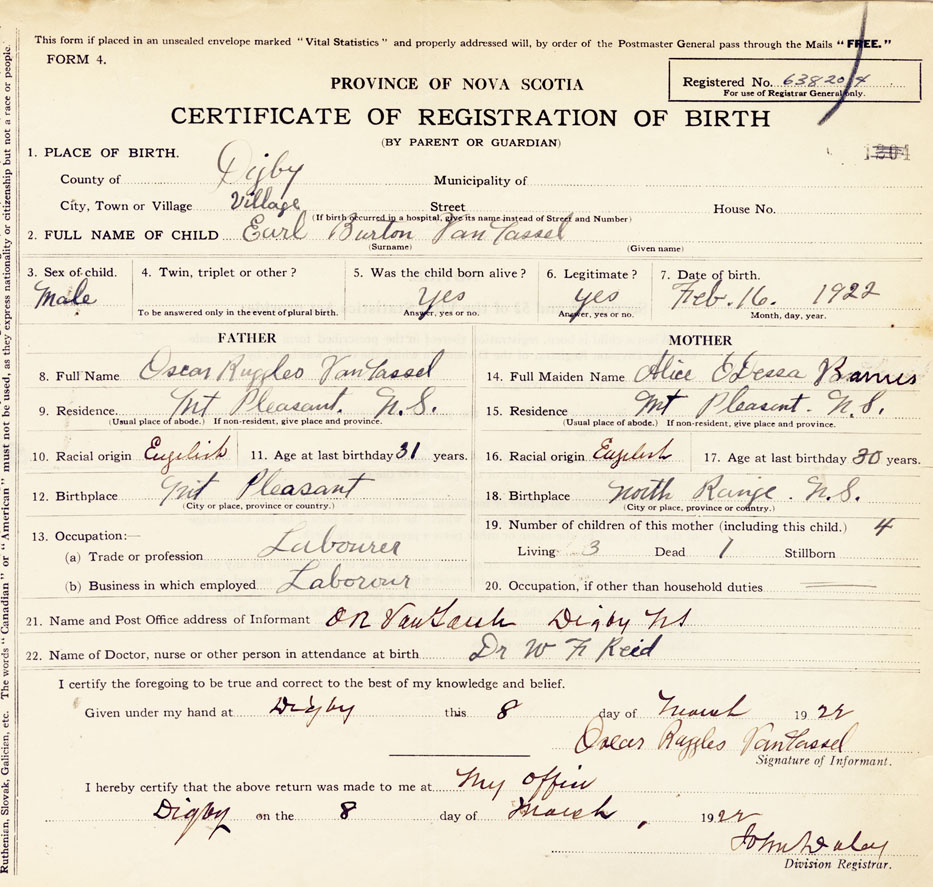 This form if placed in an unsealed envelope marked "Vital Statistics" and properly addressed will, by order of the Postmaster General pass through the Mails "FREE."
FORM 4.
Registered No. 638204
For use of Registrar General only.
PROVINCE OF NOVA SCOTIA
CERTIFICATE OF REGISTRATION OF BIRTH
(BY PARENT OR GUARDIAN)
1. PLACE OF BIRTH.
County of Digby Municipality of
City, Town or Village Village Street House No.
(If birth occurred in a hospital, give its name instead of Street and Number)
2. FULL NAME OF CHILD Earl Burton VanTassel
(Surname) (Given name)
3. Sex of child. 4. Twin, triplet or other? 5. Was the child born alive? 6. Legitimate? 7. Date of birth.
Male yes yes Feb. 16. 1922
To be answered only in the event of plural birth. Answer, yes or no. Answer, yes or no. Month, day, year.
FATHER
8. Full Name Oscar Ruggles VanTassel
9. Residence Mt Pleasant. N.S.
(Usual place of abode.) If non-resident, give place and province.
10. Racial origin English 11. Age at last birthday 31 years.
12. Birthplace Mt Pleasant
(City or place, province or country.)
13. Occupation:—
(a) Trade or profession Labourer
(b) Business in which employed Laborour
MOTHER
14. Full Maiden Name Alice ODessa Barnes
15. Residence Mt Pleasant. N.S.
(Usual place of abode.) If non-resident, give place and province.
16. Racial origin English 17. Age at last birthday 30 years.
18. Birthplace North Range. N.S.
(City or place, province or country.)
19. Number of children of this mother (including this child.) 4
Living 3 Dead 1 Stillborn
20. Occupation, if other than household duties
21. Name and Post Office address of Informant OR VanTassel Digby NS
22. Name of Doctor, nurse or other person in attendance at birth Dr W F Reid
I certify the foregoing to be true and correct to the best of my knowledge and belief.
Given under my hand at Digby this 8 day of March 1922
Oscar Ruggles VanTassel
Signature of Informant.
I hereby certify that the above return was made to me at My Office
Digby on the 8 day of March, 1922
John Daley
Division Registrar.
Ruthenian, Slovak, Galician, etc. The words "Canadian" or "American" must not be used, as they express nationality or citizenship but not a race or people.